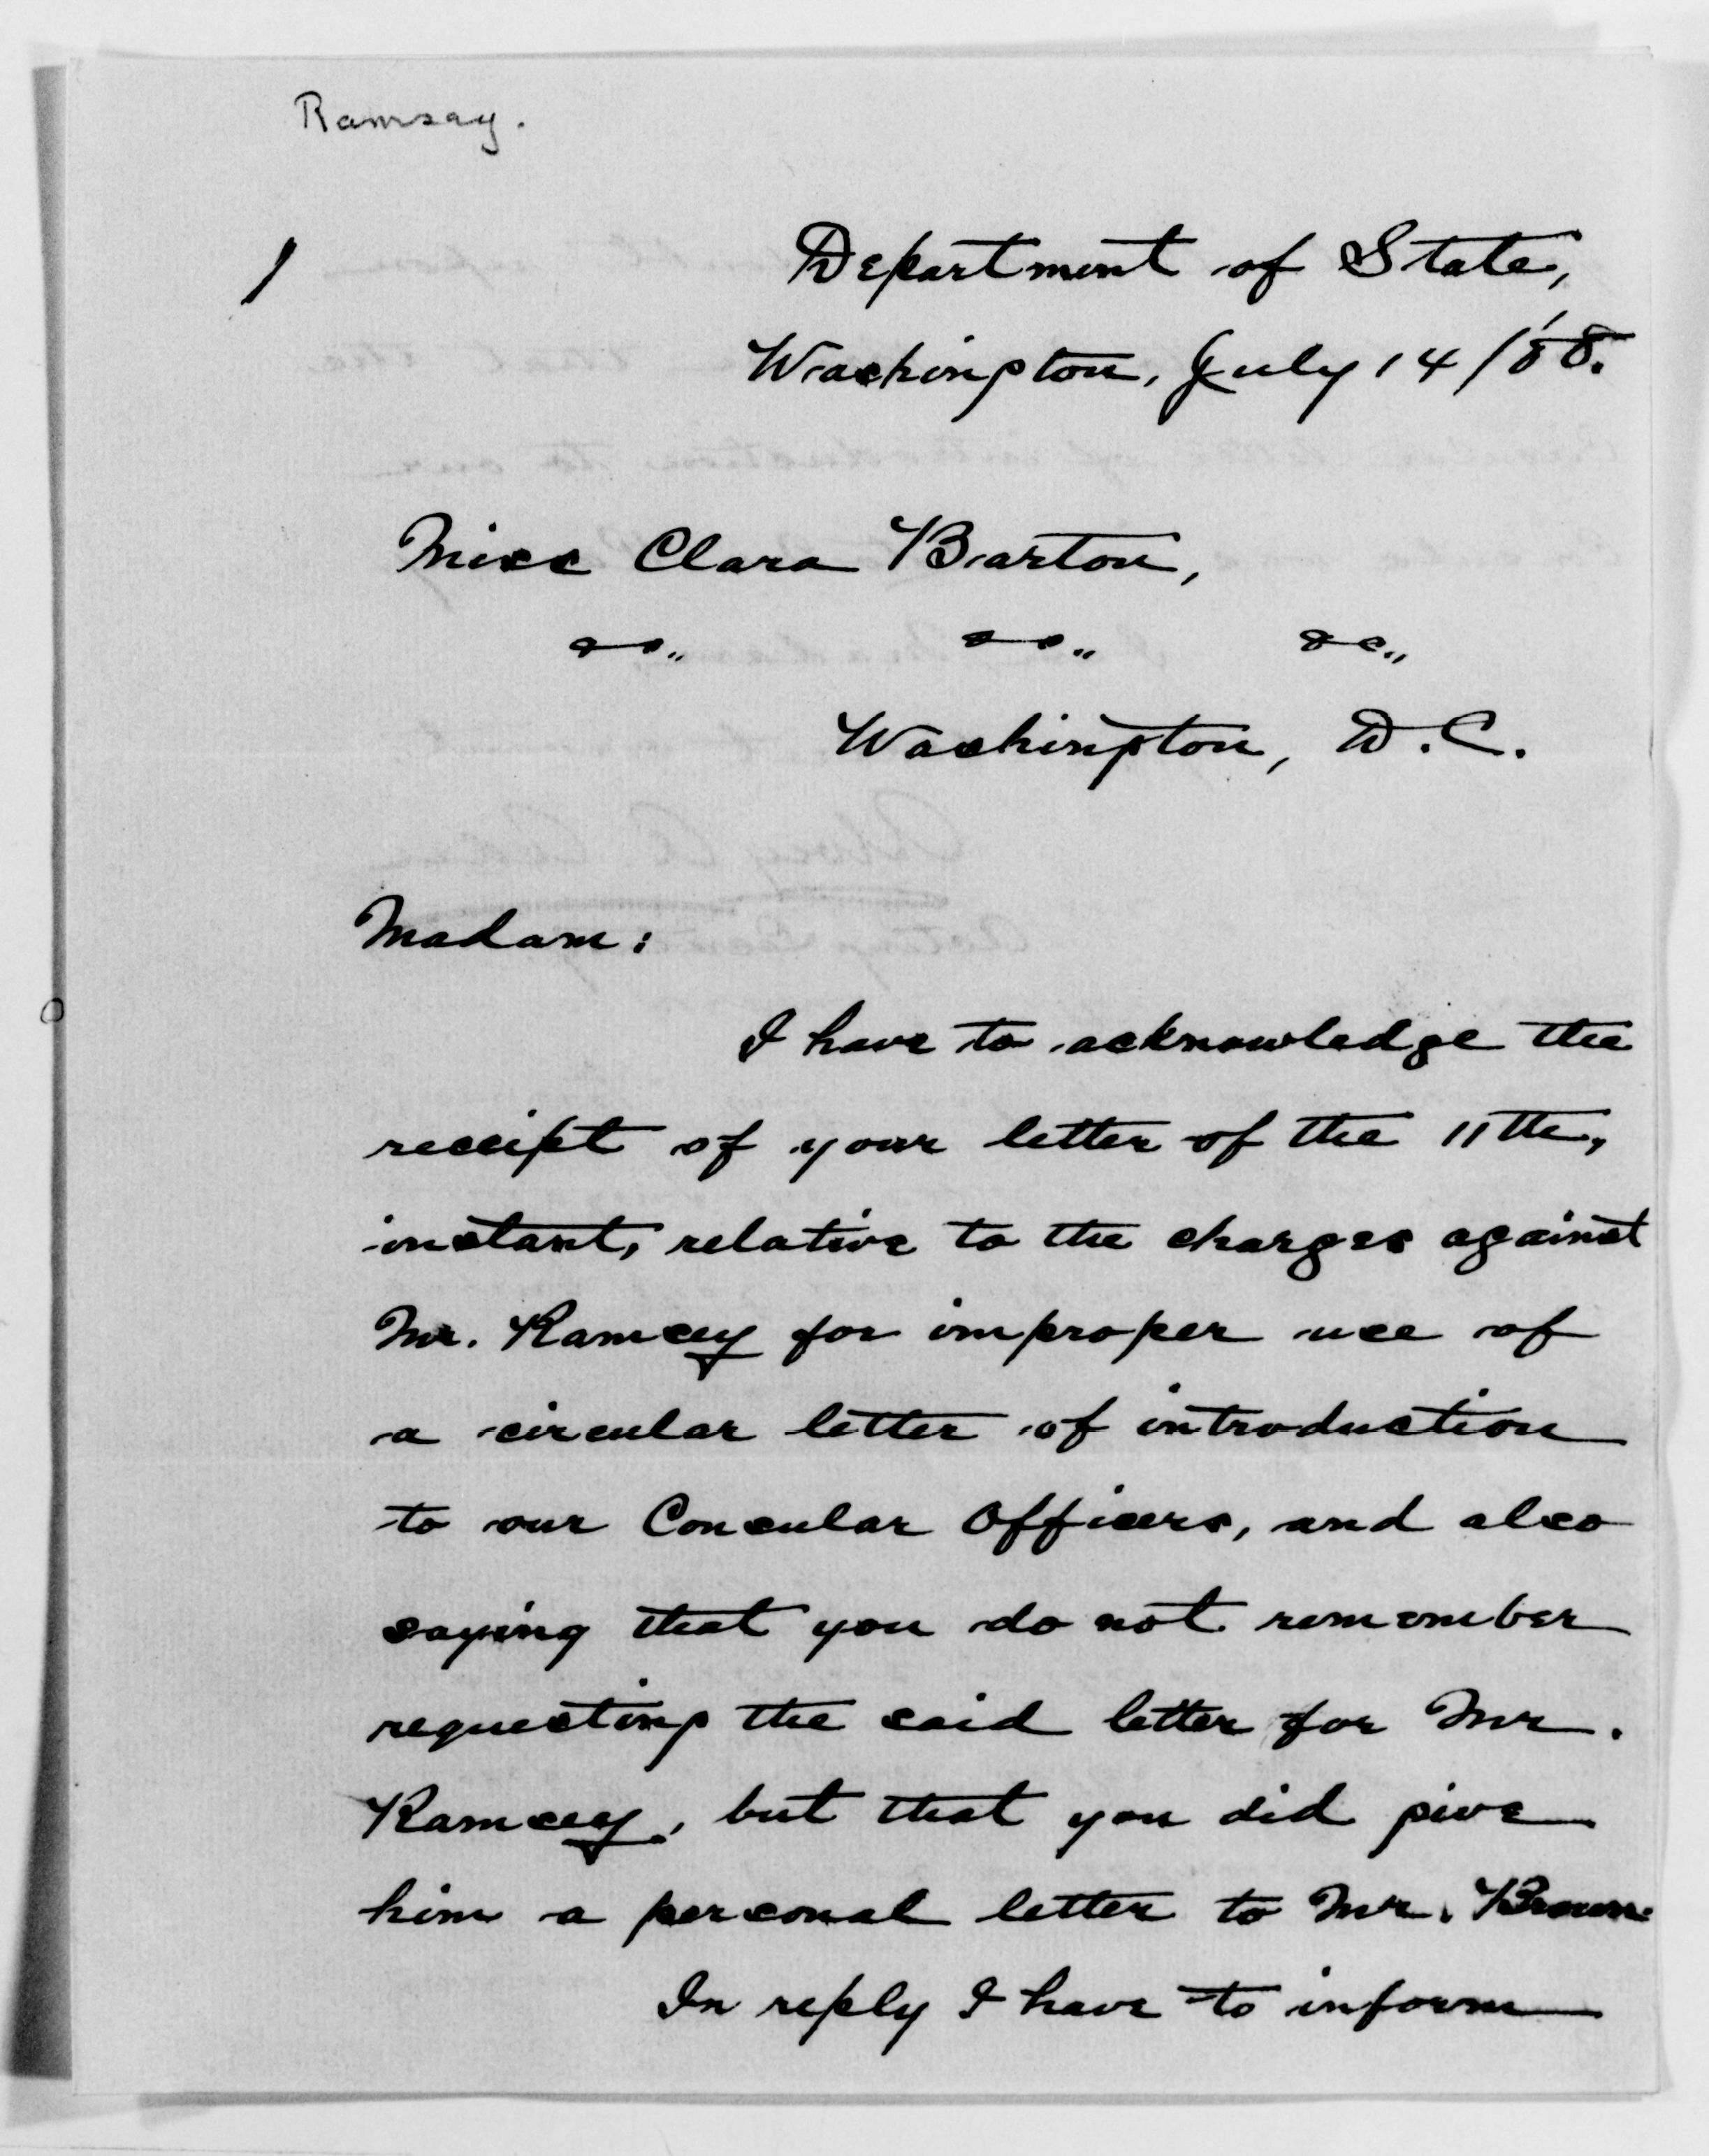 Ramsay.
1
Department of State,
Washington, July 14/88.
Miss Clara Barton,
&c., &c., &c.,
Washington, D.C.
Madam:
I have to acknowledge the
receipt of your letter of the 11th,
instant, relative to the charges against
Mr. Ramsey for improper use of
a circular letter of introduction
to our Consular Officers, and also
saying that you do not remember
requesting the said letter for Mr.
Ramsey, but that you did give
him a personal letter to Mr. Brown.
In reply I have to inform